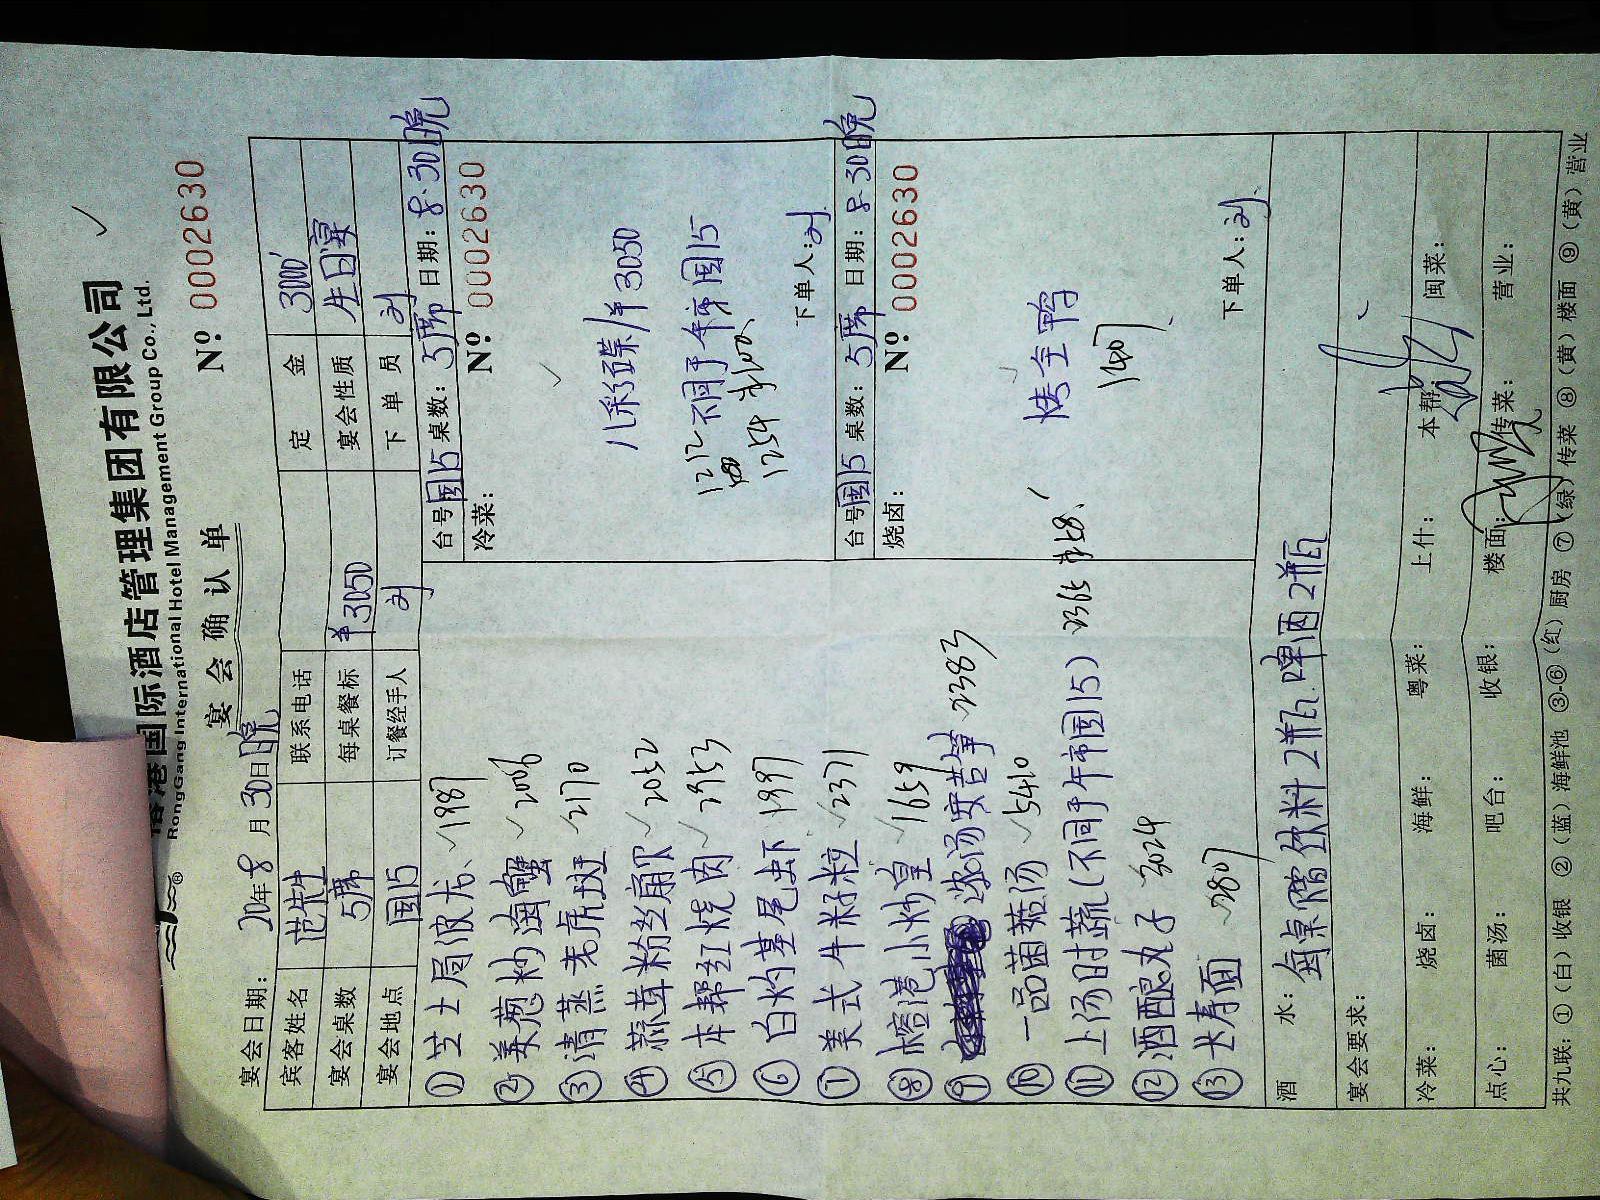 榕港国际酒店管理集团有限公司
RongGang International Hotel Management Group Co., Ltd.
宴会确认单
№ 0002630
宴会日期: 20年8月30日晚
宾客姓名 范先生 联系电话 定金 3000
宴会桌数 5席 每桌餐标 ¥3050 宴会性质 生日宴
宴会地点 国15 订餐经手人 刘 下单员 刘
①芝士焗波龙 1987
②姜葱炒海蟹 2006
③清蒸老虎斑 2170
④蒜茸粉丝扇贝 2052
⑤本邦红烧肉 2953
⑥白灼基尾虾 1997
⑦美式牛籽粒 2371
⑧榕港小炒皇 1659
⑨浓汤安吉笋 2383
⑩一品菌菇汤 5410
⑪上汤时蔬(不同于午市国15) 2365
⑫酒酿丸子 3024
⑬长寿面 2807
台号国15 桌数: 5席 日期: 8.30日晚
冷菜: № 0002630
八彩碟/¥3050
1212不同于午市国15
1254
下单人: 刘
台号国15 桌数: 5席 日期: 8.30日晚
烧卤: № 0002630
烤全鸭
1407
下单人: 刘
酒水: 每桌赠饮料2瓶.啤酒2瓶
宴会要求:
冷菜: 烧卤: 海鲜: 粤菜: 上什: 本帮: 闽菜:
点心: 菌汤: 吧台: 收银: 楼面: 传菜: 营业:
共九联: ①(白)收银 ②(蓝)海鲜池 ③-⑥(红)厨房 ⑦(绿)传菜 ⑧(黄)楼面 ⑨(黄)营业